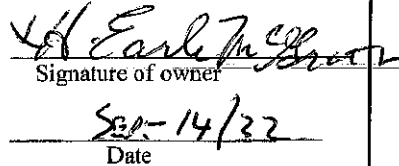 H. Earle McG
Signature of owner
Sep- 14/22
Date